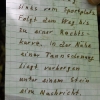 links vom Sportplatz
Folgt dem Weg bis
zu einer Rechts-
kurve. In der Nähe
einer Tannen
liegt verborgen
unter einem Stein
eine Nachricht.